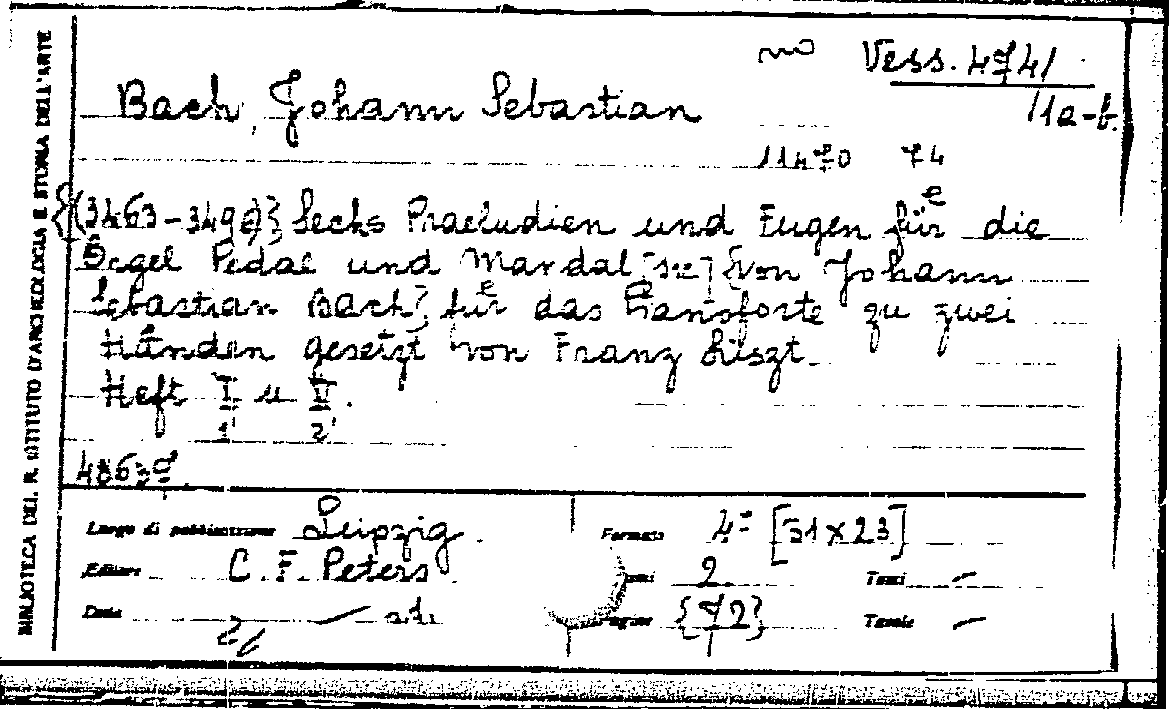 BIBLIOTECA DEL R. ISTITUTO D'ARCHEOLOGIA E STORIA DELL'ARTE
Vess. 4741
Bach, Johann Sebastian
11a-b.
11470 74
Sechs Praeludien und Fugen für die
Orgel Pedal und Mandal [sic] {von Johann
Sebastian Bach} für das Pianoforte zu zwei
Händen gesetzt von Franz Liszt.
Heft I u II.
1 2
Luogo di pubblicazione Leipzig. Formato 4° [31x23]
Editore C. F. Peters 2. Tomi –
Data {72} Tavole –